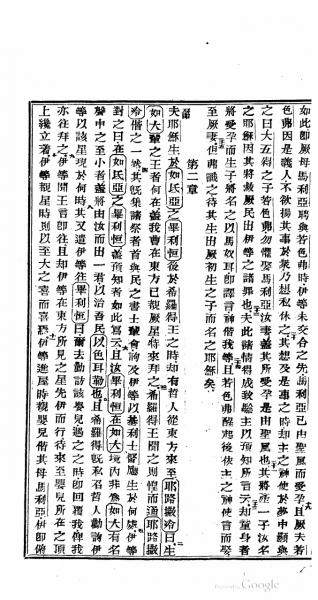 如此即厥母馬利亞聘與若色弗時伊等未交合之先馬利亞已由聖風而受孕且厥夫若
色弗因是義人不欲揚其事於衆方想私休之其想及是事之時却主之神使於夢中顯與
之曰大五得之子若色弗勿懼娶馬利亞汝妻蓋其所受孕是由聖風也其將產一子汝名
之耶穌因其將救厥民出伊等之諸罪也夫此諸情得成致驗主以預知所言云却童身者
將受孕而生子將名之以馬奴耳即譯言神偕我等且若色弗醒起後依主之神使言而娶
至厥妻但弗識之待其生出厥初生之子而名之耶穌矣
第二章
夫耶穌生於如氐亞之畢利恒後於希羅得王之時却有哲人從東方來至耶路撒冷曰生
如大輩之王者何在蓋我曹在東方已觀厥星特來拜之希羅得王聞之則惶而通耶路撒
冷偕之一城其既集諸祭者首與民之書士輩會詢及伊等以基利士督應生於何處伊等
對之曰在如氐亞之畢利恒蓋預知者如此寫云且汝畢利恒在如大境內非為如大有名
聲中之至小者蓋將由汝而出一君以治吾民以色耳勒也且希羅得既私召哲人勤詢伊
等以該星現於何時其又遣伊等往畢利恒曰爾去勤訪該嬰兒遇之之時即回覆我俾我
亦往拜之伊等聞王言即往且却伊等在東方所見之星先伊而行待來至嬰兒所在之頂
上纔立著伊等觀星時則以至大之喜而喜焉伊等進屋時視嬰兒偕其母馬利亞伊即俯
Google